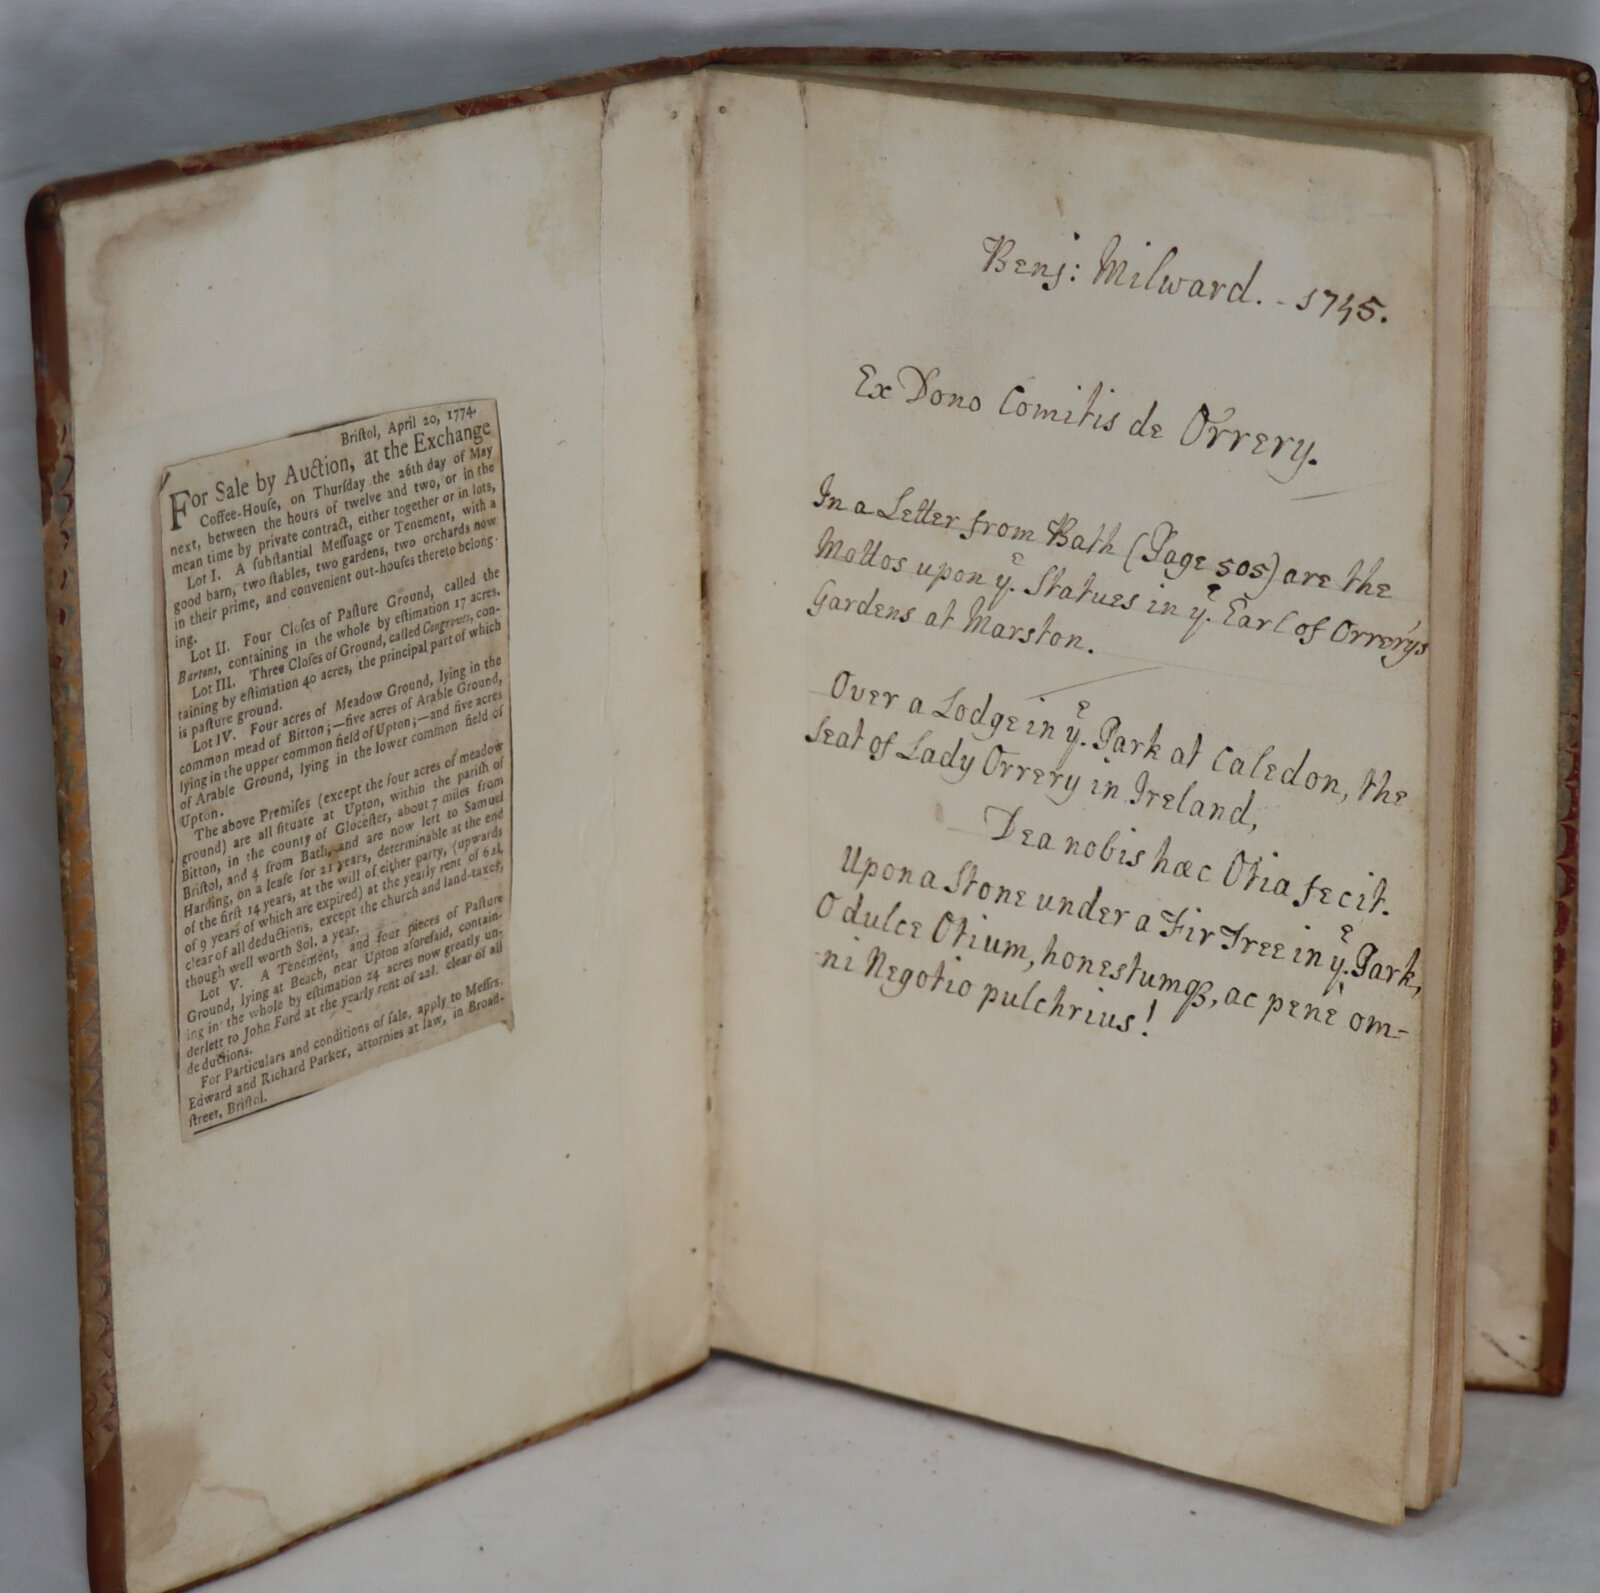 Bristol, April 20, 1774.
For Sale by Auction, at the Exchange
Coffee-House, on Thursday the 26th day of May
next, between the hours of twelve and two, or in the
mean time by private contract, either together or in lots,
Lot I. A substantial Messuage or Tenement, with a
good barn, two stables, two gardens, two orchards now
in their prime, and convenient out-houses thereto belong-
ing.
Lot II. Four Closes of Pasture Ground, called the
Bartons, containing in the whole by estimation 17 acres.
Lot III. Three Closes of Ground, called Congroves, con-
taining by estimation 40 acres, the principal part of which
is pasture ground.
Lot IV. Four acres of Meadow Ground, lying in the
common mead of Bitton;—five acres of Arable Ground,
lying in the upper common field of Upton;—and five acres
of Arable Ground, lying in the lower common field of
Upton.
The above Premises (except the four acres of meadow
ground) are all situate at Upton, within the parish of
Bitton, in the county of Glocester, about 7 miles from
Bristol, and 4 from Bath, and are now lett to Samuel
Harding, on a lease for 21 years, determinable at the end
of the first 14 years, at the will of either party, (upwards
of 9 years of which are expired) at the yearly rent of 62l.
clear of all deductions, except the church and land-taxes,
though well worth 80l. a year.
Lot V. A Tenement, and four pieces of Pasture
Ground, lying at Beach, near Upton aforesaid, contain-
ing in the whole by estimation 24 acres now greatly un-
derlett to John Ford at the yearly rent of 22l. clear of all
deductions.
For Particulars and conditions of sale, apply to Messrs.
Edward and Richard Parker, attornies at law, in Broad-
street, Bristol.
Benj: Milward. - 1745.
Ex Dono Comitis de Orrery.
In a Letter from Bath (Page 505) are the
Mottos upon yᵉ. Statues in yᵉ. Earl of Orrery's
Gardens at Marston.
Over a Lodge in yᵉ. Park at Caledon, the
Seat of Lady Orrery in Ireland,
Dea nobis hæc Otia fecit.
Upon a Stone under a Fir Tree in yᵉ. Park,
O dulce Otium, honestumqꝫ, ac penè om-
ni Negotio pulchrius!